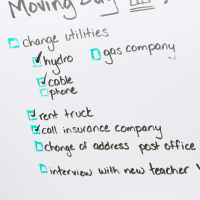 Moving Day !
change utilities
hydro gas company
cable
phone
rent truck
call insurance company
change of address post office
interview with new teacher